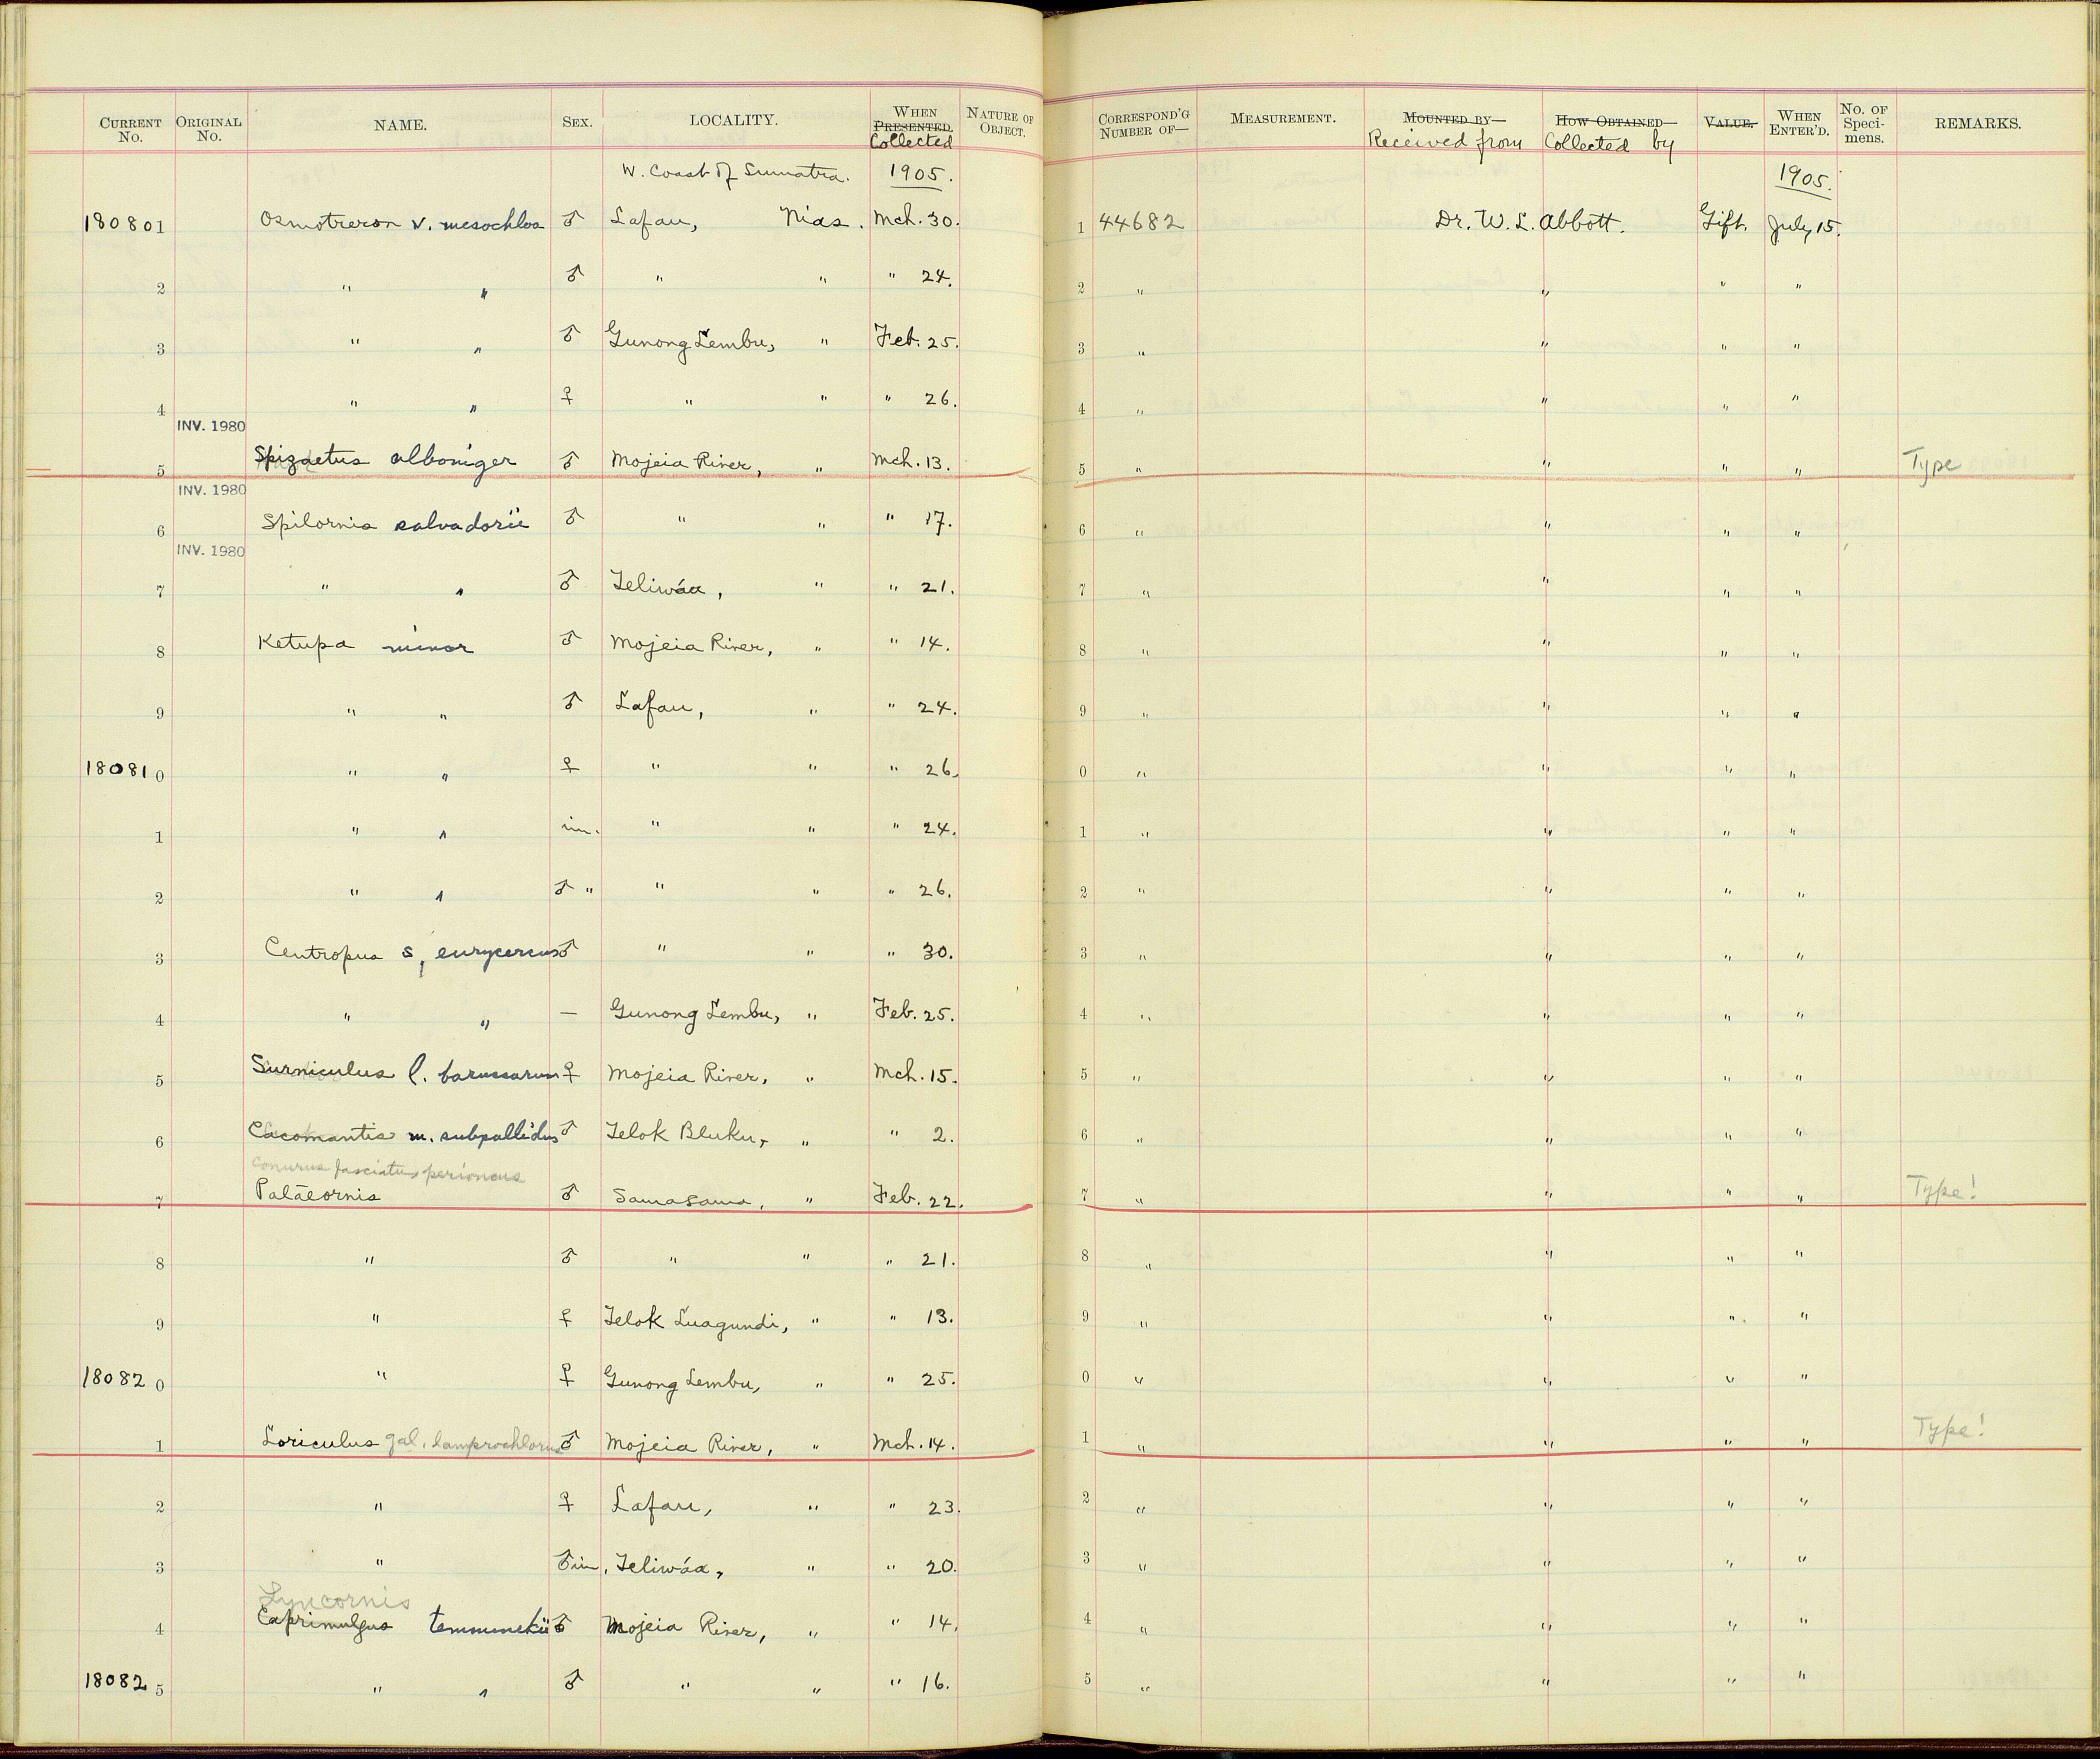 CURRENT No. ORIGINAL No. NAME. SEX. LOCALITY. WHEN PRESENTED. Collected NATURE OF OBJECT. CORRESPOND'G NUMBER OF— MEASUREMENT. MOUNTED BY— Received from HOW OBTAINED— Collected by VALUE. WHEN ENTER'D. No. OF Speci-mens. REMARKS.
W. Coast of Sumatra. 1905. 1905.
180801 Osmotreron v. mesochloa ♂ Lafau, Nias. Mch. 30. 1 44682 Dr. W. L. Abbott. Gift. July 15.
2 " " ♂ " " " 24. 2 " " " "
3 " " ♂ Gunong Lembu, " Feb. 25. 3 " " " "
4 " " ♀ " " " 26. 4 " " " "
INV. 1980
5 Spizaetus alboniger ♂ Mojeia River, " Mch. 13. 5 " " " " Type
INV. 1980
6 Spilornis salvadorii ♂ " " " 17. 6 " " " "
INV. 1980
7 " " ♂ Teliwáa, " " 21. 7 " " " "
8 Ketupa minor ♂ Mojeia River, " " 14. 8 " " " "
9 " " ♂ Lafau, " " 24. 9 " " " "
180810 " " ♀ " " " 26. 0 " " " "
1 " " im. " " " 24. 1 " " " "
2 " " ♂ " " " " 26. 2 " " " "
3 Centropus s. eurycercus ♂ " " " 30. 3 " " " "
4 " " — Gunong Lembu, " Feb. 25. 4 " " " "
5 Surniculus l. barussarum ♀ Mojeia River, " Mch. 15. 5 " " " "
6 Cacomantis m. subpallidus ♂ Telok Bluku, " " 2. 6 " " " "
Conurus fasciatus perioncus
7 Palaeornis ♂ Samasama, " Feb. 22. 7 " " " " Type!
8 " ♂ " " " 21. 8 " " " "
9 " ♀ Telok Luagundi, " " 13. 9 " " " "
180820 " ♀ Gunong Lembu, " " 25. 0 " " " "
1 Loriculus gal. lamprochlorus ♂ Mojeia River, " Mch. 14. 1 " " " " Type!
2 " ♀ Lafau, " " 23. 2 " " " "
3 " ♂ im. Teliwáa, " " 20. 3 " " " "
Lyncornis
4 Caprimulgus temminckii ♂ Mojeia River, " " 14. 4 " " " "
180825 " " ♂ " " " 16. 5 " " " "